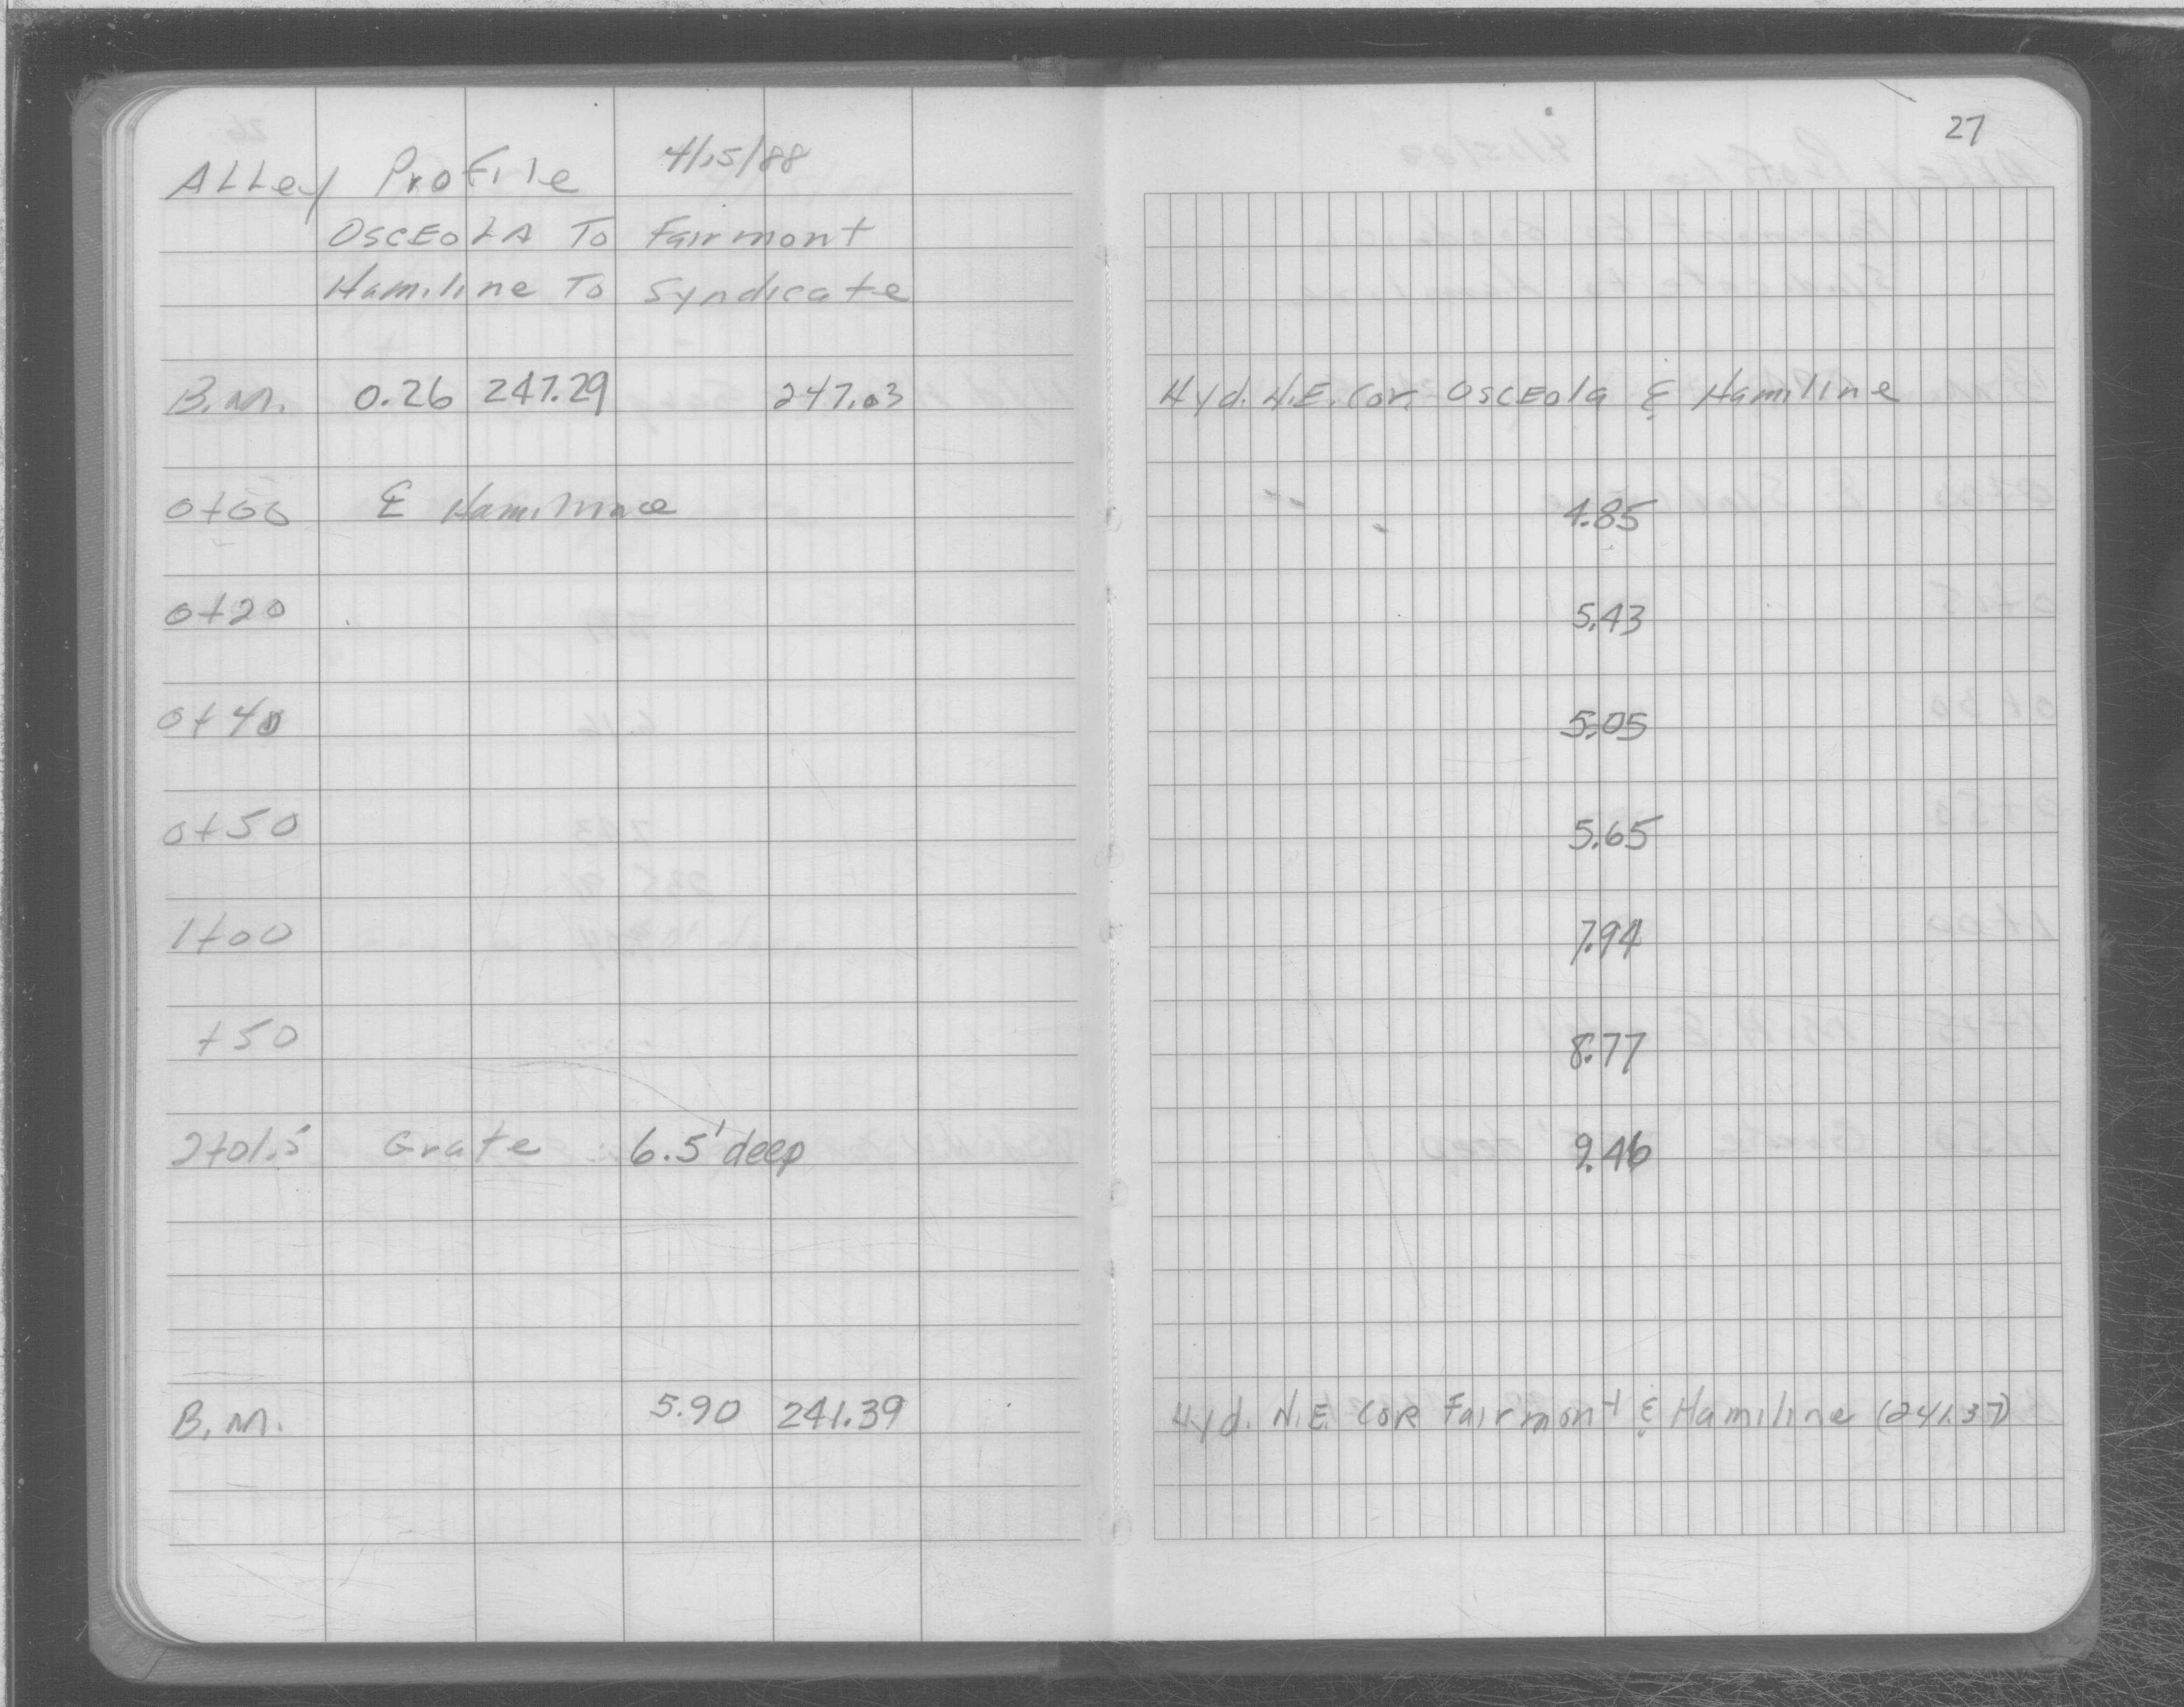 27
ALLey Profile 4/15/88
OSCEOLA To Fairmont
Hamiline To Syndicate
B.M. 0.26 247.29 247.03 Hyd. N.E. Cor. OSCEola & Hamiline
0+00 ⅊ Hamiline 4.85
0+20 5.43
0+40 5.05
0+50 5.65
1+00 7.94
+50 8.77
2+01.5 Grate 6.5' deep 9.46
B.M. 5.90 241.39 Hyd. N.E. COR Fairmont & Hamiline (241.37)